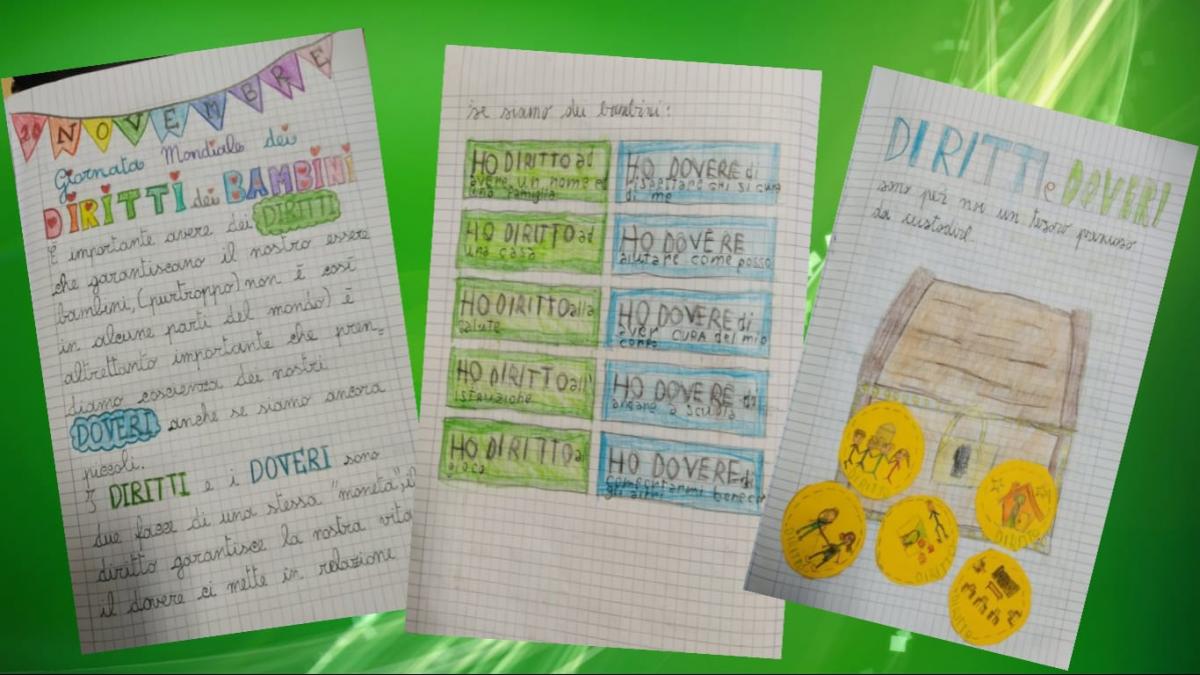 20 NOVEMBRE
Giornata Mondiale dei
DIRITTI dei BAMBINI
È importante avere dei DIRITTI
che garantiscano il nostro essere
bambini, (purtroppo) non è così
in alcune parti del mondo) è
altrettanto importante che pren-
diamo coscienza dei nostri
DOVERI anche se siamo ancora
piccoli.
I DIRITTI e i DOVERI sono
due facce di una stessa "moneta", il
diritto garantisce la nostra vita
il dovere ci mette in relazione
se siamo dei bambini:
HO DIRITTO ad
avere un nome e
una famiglia
HO DOVERE di
rispettare chi si cura
di me
HO DIRITTO ad
una casa
HO DOVERE
aiutare come posso
HO DIRITTO alla
salute
HO DOVERE di
aver CURA del mio
corpo
HO DIRITTO all'
istruzione
HO DOVERE di
andare a scuola
HO DIRITTO al
gioco
HO DOVERE di
comportarmi bene con
gli altri
DIRITTI e DOVERI
sono per noi un tesoro prezioso
da custodire.
DIRITTO
DIRITTO
DIRITTO
DIRITTO
DIRITTO